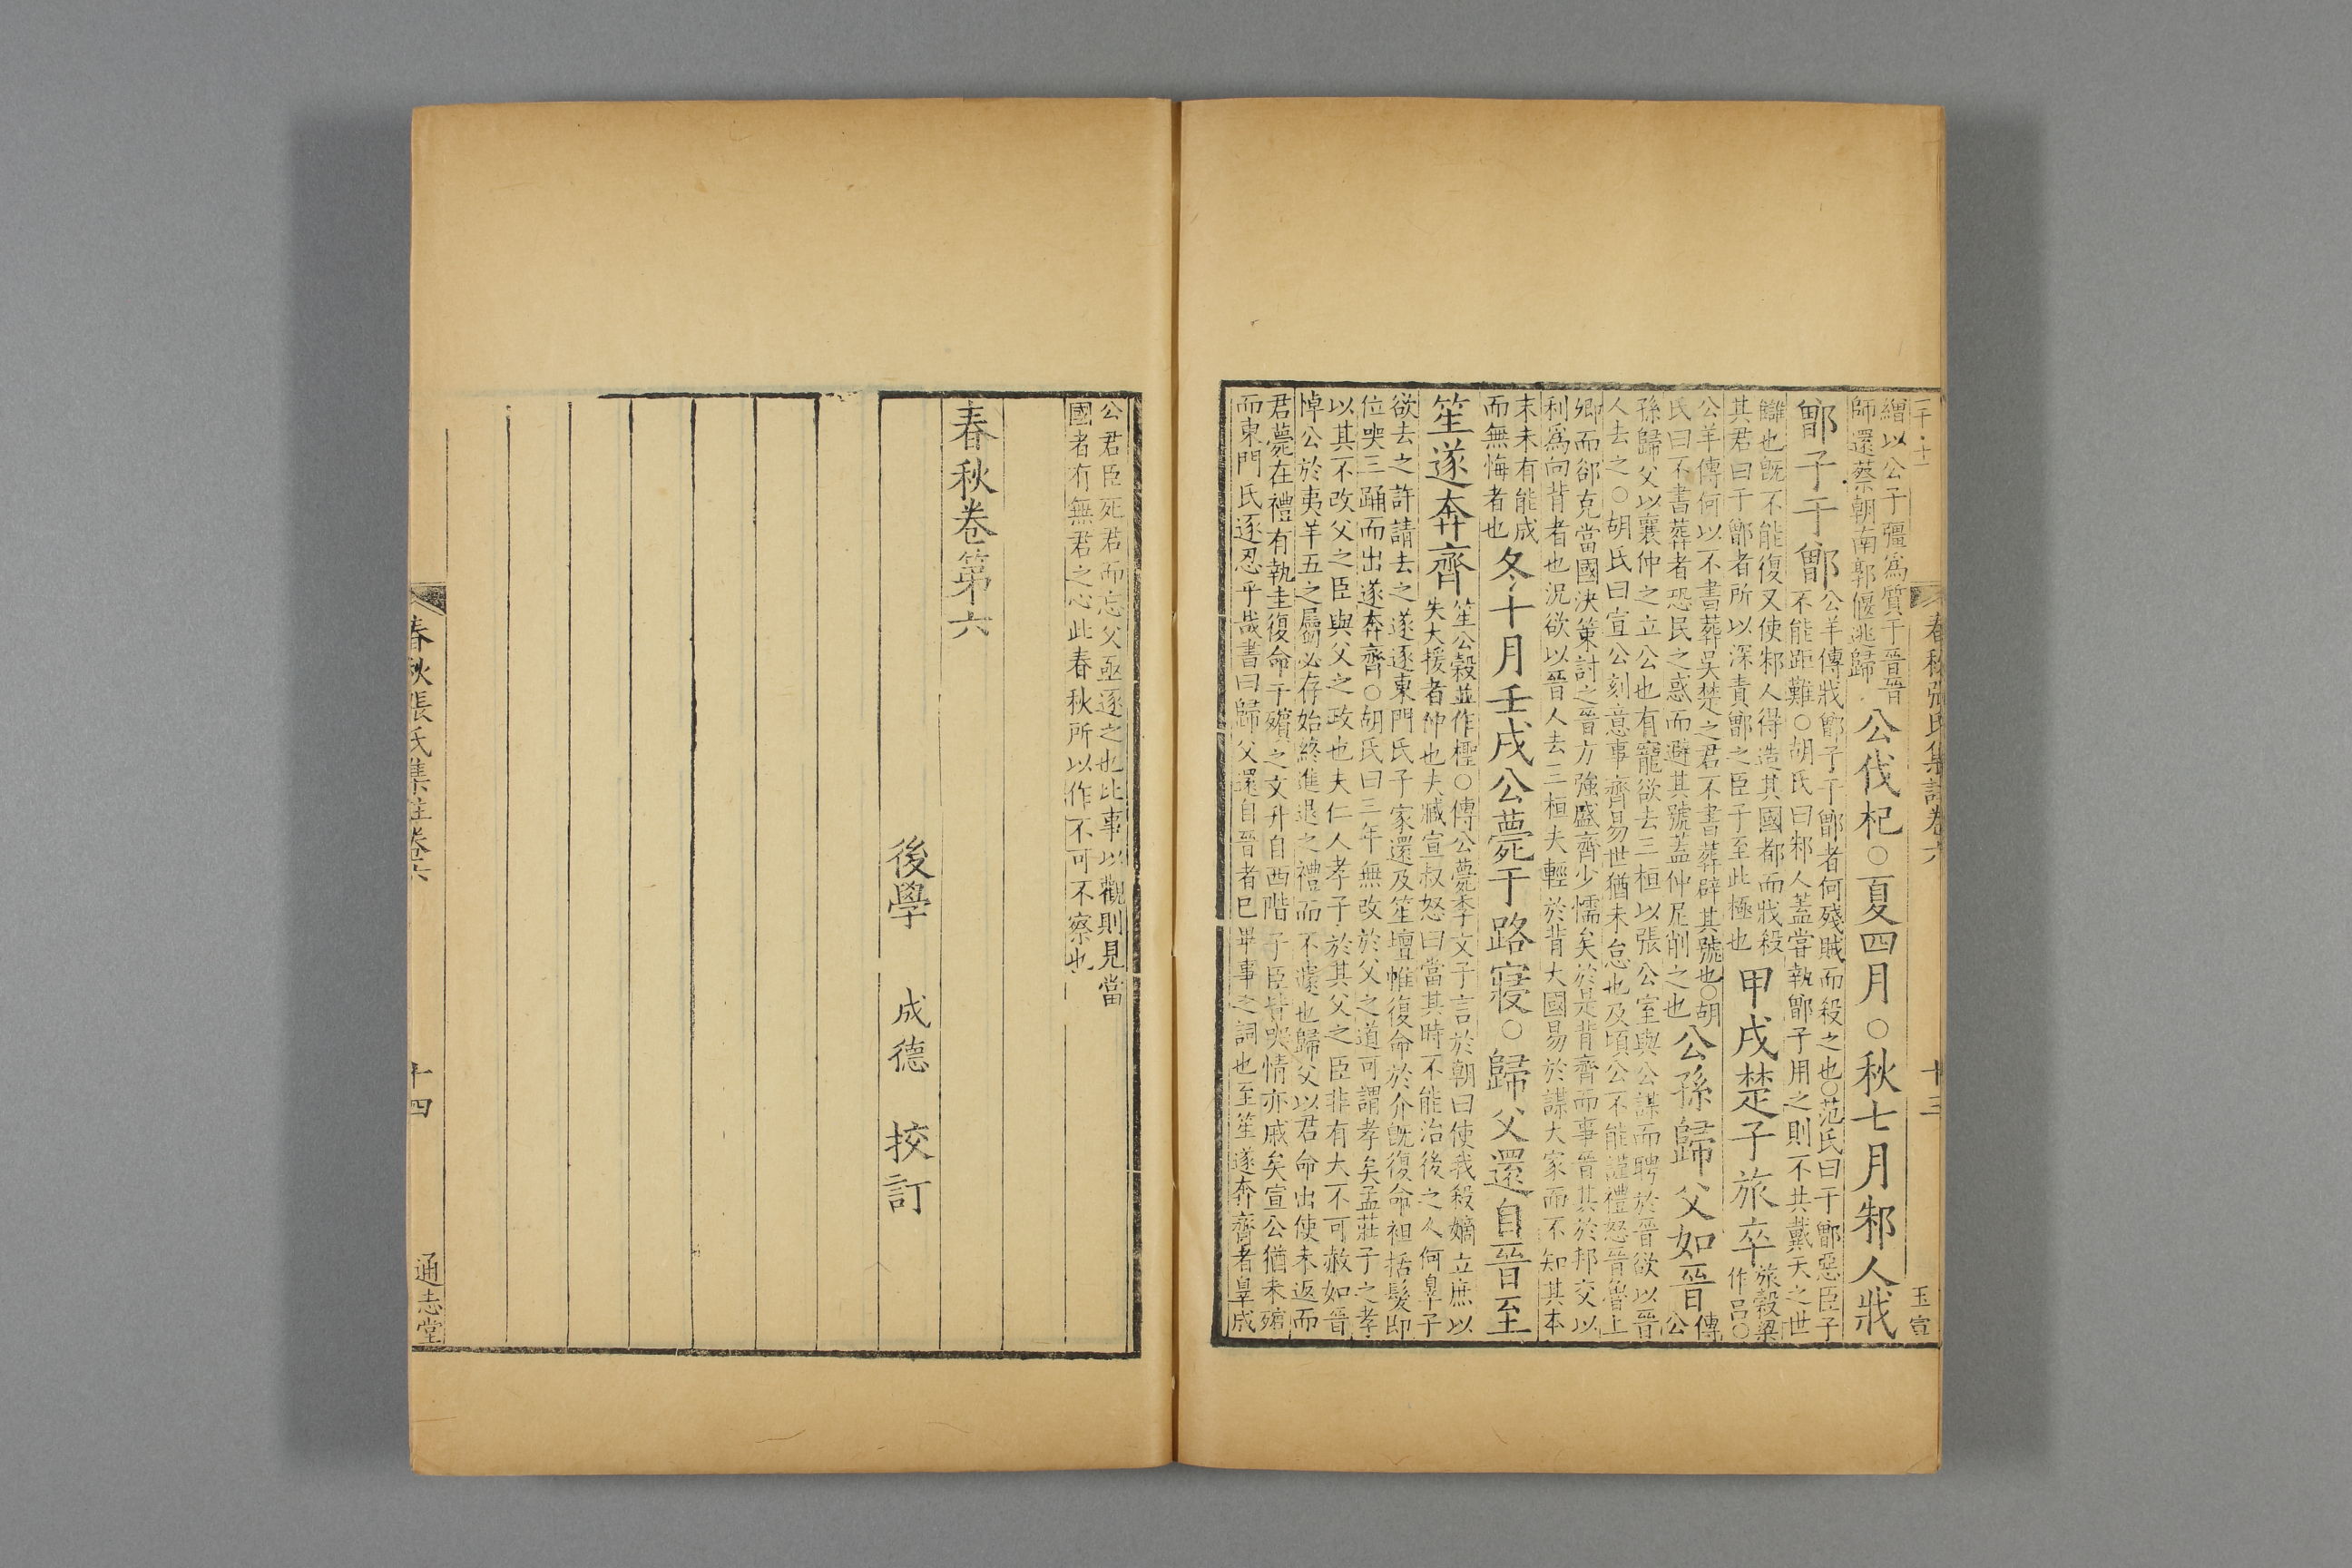 春秋張氏集註卷六
十三
玉宣
繒以公子彊爲質于晉晉
師還蔡朝南郭偃逃歸
公伐杞○夏四月○秋七月邾人戕
鄫子于鄫
公羊傳戕鄫子于鄫者何殘賊而殺之也○范氏曰于鄫惡臣子
不能距難○胡氏曰邾人蓋嘗執鄫子用之則不共戴天之世
讎也旣不能復又使邾人得造其國都而戕殺
其君曰于鄫者所以深責鄫之臣子至此極也
甲戌楚子旅卒
旅穀梁
作吕○
公羊傳何以不書葬吳楚之君不書葬辟其號也○胡
氏曰不書葬者恐民之惑而避其號蓋仲尼削之也
公孫歸父如晉
傳
公
孫歸父以襄仲之立公也有寵欲去三桓以張公室與公謀而聘於晉欲以晉
人去之○胡氏曰宣公刻意事齊易世猶未怠也及頃公不能謹禮怒晉魯上
卿而郤克當國決策討之晉方強盛齊少懦矣於是背齊而事晉其於邦交以
利爲向背者也況欲以晉人去三桓夫輕於背大國易於謀大家而不知其本
末未有能成
而無悔者也
冬十月壬戌公薨于路寢○歸父還自晉至
笙遂奔齊
笙公穀並作檉○傳公薨季文子言於朝曰使我殺嫡立庶以
失大援者仲也夫臧宣叔怒曰當其時不能治後之人何辠子
欲去之許請去之遂逐東門氏子家還及笙壇帷復命於介旣復命袒括髮即
位哭三踊而出遂奔齊○胡氏曰三年無改於父之道可謂孝矣孟莊子之孝
以其不改父之臣與父之政也夫仁人孝子於其父之臣非有大不可赦如晉
悼公於夷羊五之屬必存始終進退之禮而不遽也歸父以君命出使未返而
君薨在禮有執圭復命于殯之文升自西階子臣皆哭情亦戚矣宣公猶未殯
而東門氏逐忍乎哉書曰歸父還自晉者巳畢事之詞也至笙遂奔齊者辠成
公君臣死君而忘父亟逐之也比事以觀則見當
國者有無君之心此春秋所以作不可不察也
春秋卷第六
後學　成德　挍訂
春秋張氏集註卷六
十四
通志堂